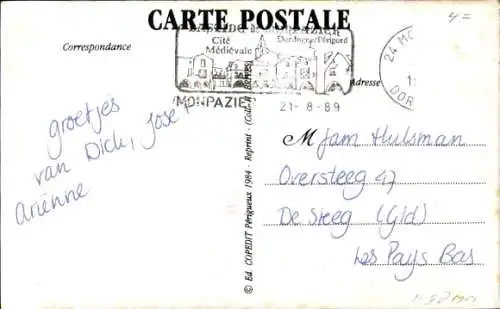 CARTE POSTALE
BASTIDE DE MONPAZIER
Cité
Médiévale
Dordogne-Périgord
Correspondance
Adresse
24 MO
DOR
MONPAZIER
21-8-89
groetjes
van Dick, José
Ariënne
M Jam Hulsman
Oversteeg 47
De Steeg (Gld)
Les Pays Bas
© Ed. COPEDIT Périgueux 1984 - Reprint -
4=